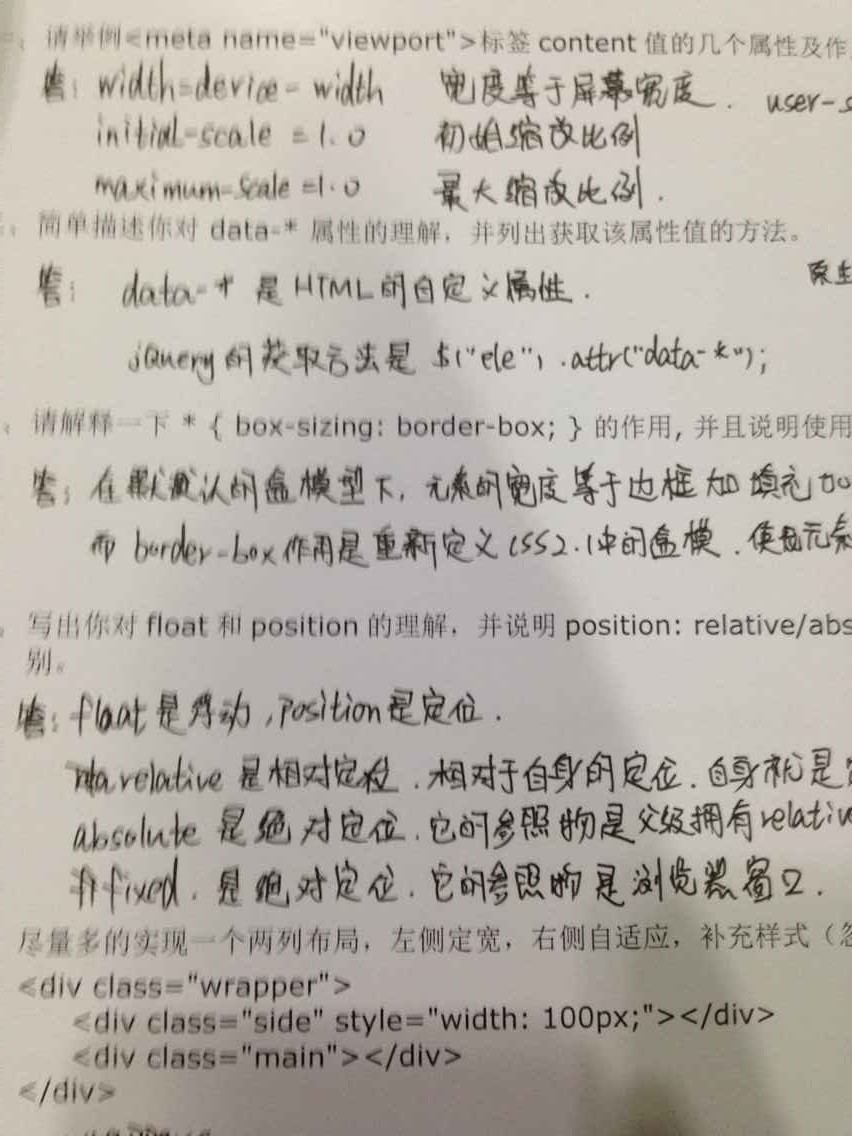 一、请举例<meta name="viewport">标签 content 值的几个属性及作
答: width=device-width 宽度等于屏幕宽度. user-s
initial-scale =1.0 初始缩放比例
maximum-scale =1.0 最大缩放比例.
简单描述你对 data-* 属性的理解，并列出获取该属性值的方法。
答: data-* 是HTML的自定义属性. 原生
jQuery的获取方法是 $("ele").attr("data-*");
请解释一下 * { box-sizing: border-box; } 的作用, 并且说明使用
答: 在默认的盒模型下, 元素的宽度等于边框加填充加
而 border-box作用是重新定义CSS2.1中的盒模. 使用元素
写出你对 float 和 position 的理解，并说明 position: relative/abs
别。
答: float是浮动,position是定位.
relative是相对定位.相对于自身的定位.自身就是
absolute是绝对定位.它的参照物是父级拥有relativ
fixed.是绝对定位.它的参照物是浏览器窗口.
尽量多的实现一个两列布局，左侧定宽，右侧自适应，补充样式（忽
<div class="wrapper">
<div class="side" style="width: 100px;"></div>
<div class="main"></div>
</div>